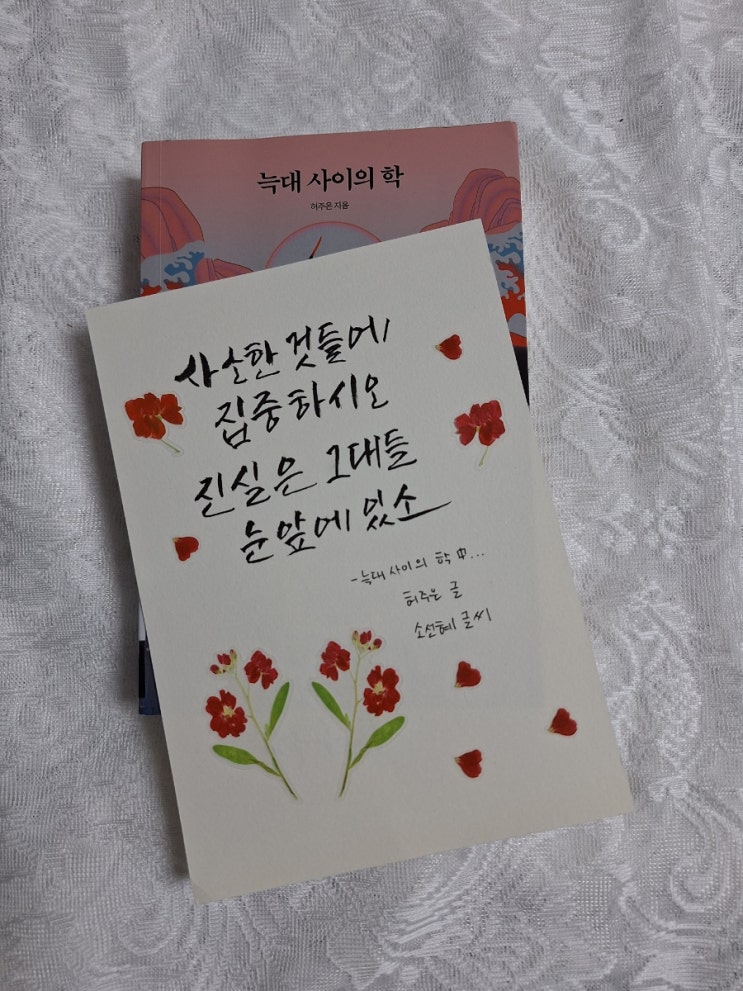 늑대 사이의 학
허주은 지음
사소한 것들에
집중하시오
진실은 그대들
눈앞에 있소
- 늑대 사이의 학 中...
허주은 글
소선혜 글씨